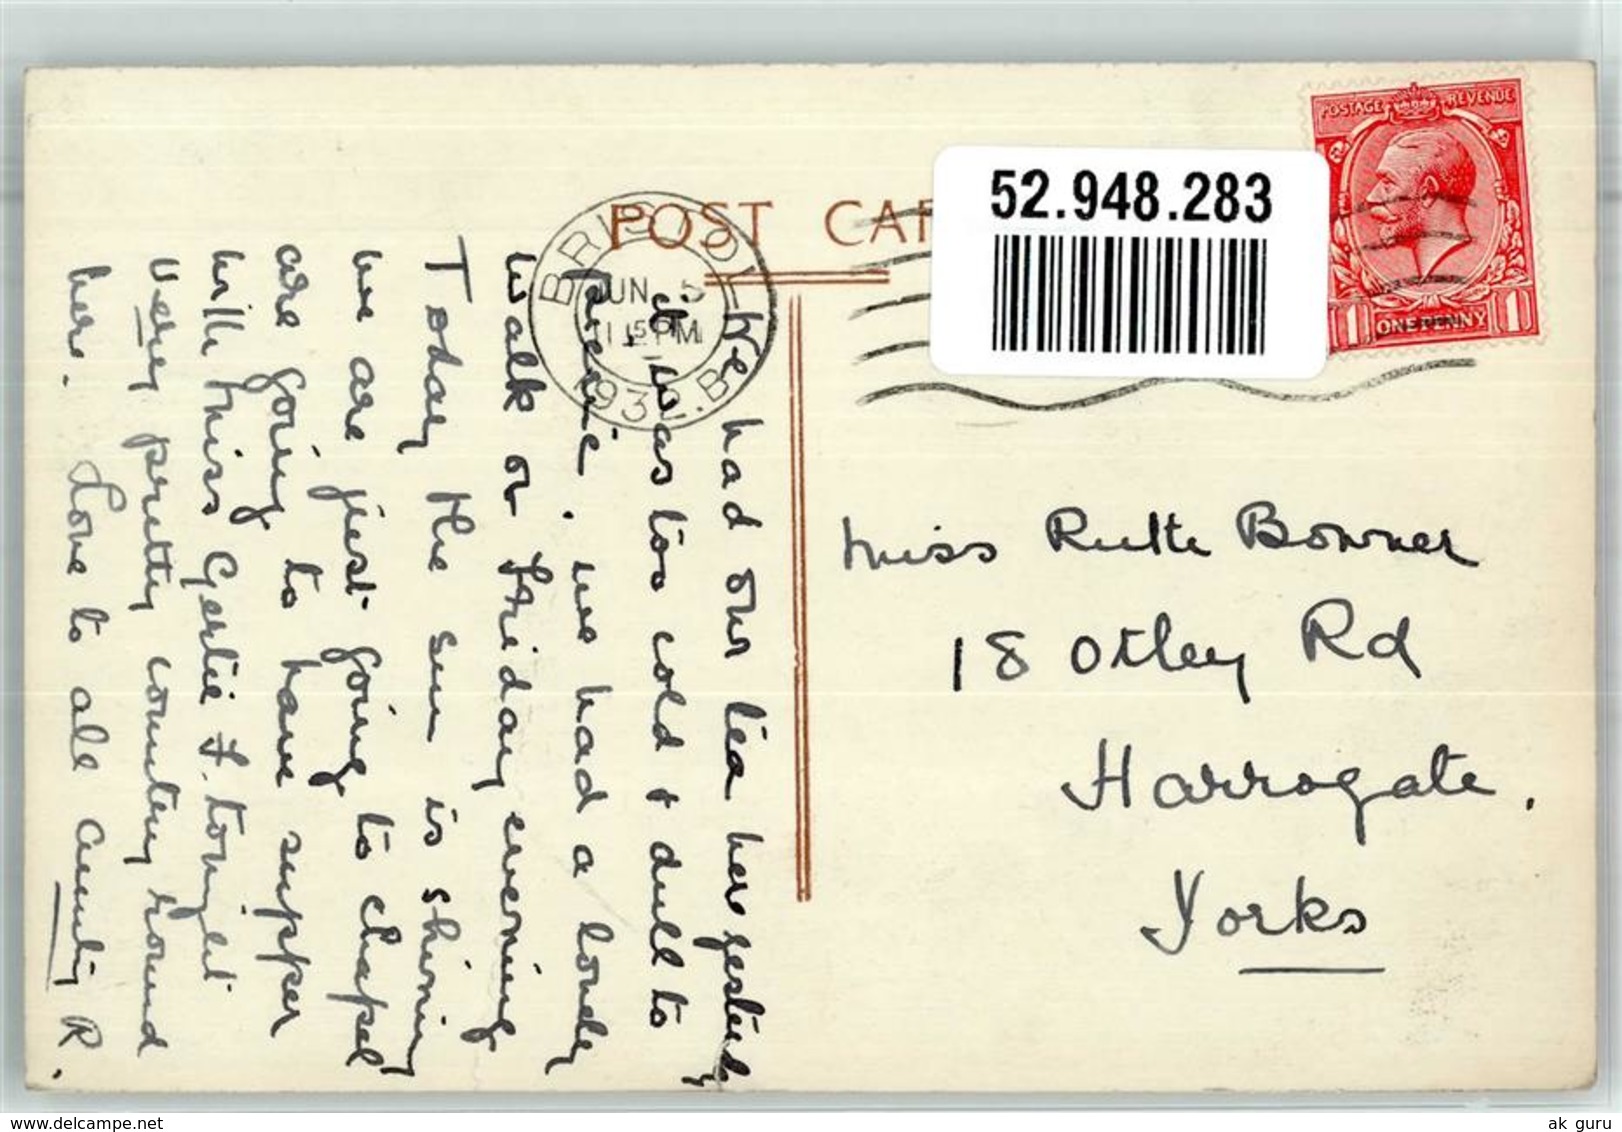 POST CAR
52.948.283
POSTAGE REVENUE
1 ONE PENNY 1
BRISTOL
JUN 5
1932. B
We had our tea here yesterday
it was too cold & dull to
picnic. we had a lovely
walk on Friday evening
Today the sun is shining
we are just going to chapel
are going to have supper
with Miss Gertie F. tonight
Very pretty country round
here. Love to all Auntie R.
Miss Ruth Bowner
18 Otley Rd
Harrogate.
Yorks
ak guru